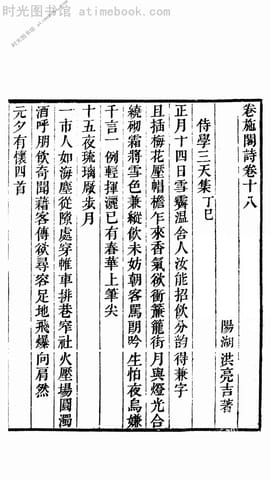 时光图书馆 - atimebook.com
卷施閣詩卷十八
陽湖 洪亮吉著
侍學三天集 丁巳
正月十四日雪霽温舍人汝能招飲分韵得兼字
且插梅花壓帽檐乍來香氣欲衝簾龍街月與燈光合
繞砌霜將雪色兼縱飲未妨朝客罵閒吟生怕夜烏嫌
千言一例輕揮灑已有春華上筆尖
十五夜琉璃厰步月
一市人如海塵從隙處穿帷車排巷窄社火壓場圓濁
酒呼朋飲奇聞藉客傳欲尋容足地飛爆向肩然
元夕有懷四首
时光图书馆 - atimebook.com